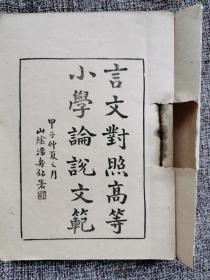 言文對照高等
小學論說文範
甲子仲夏之月
山陰潘壽銘署